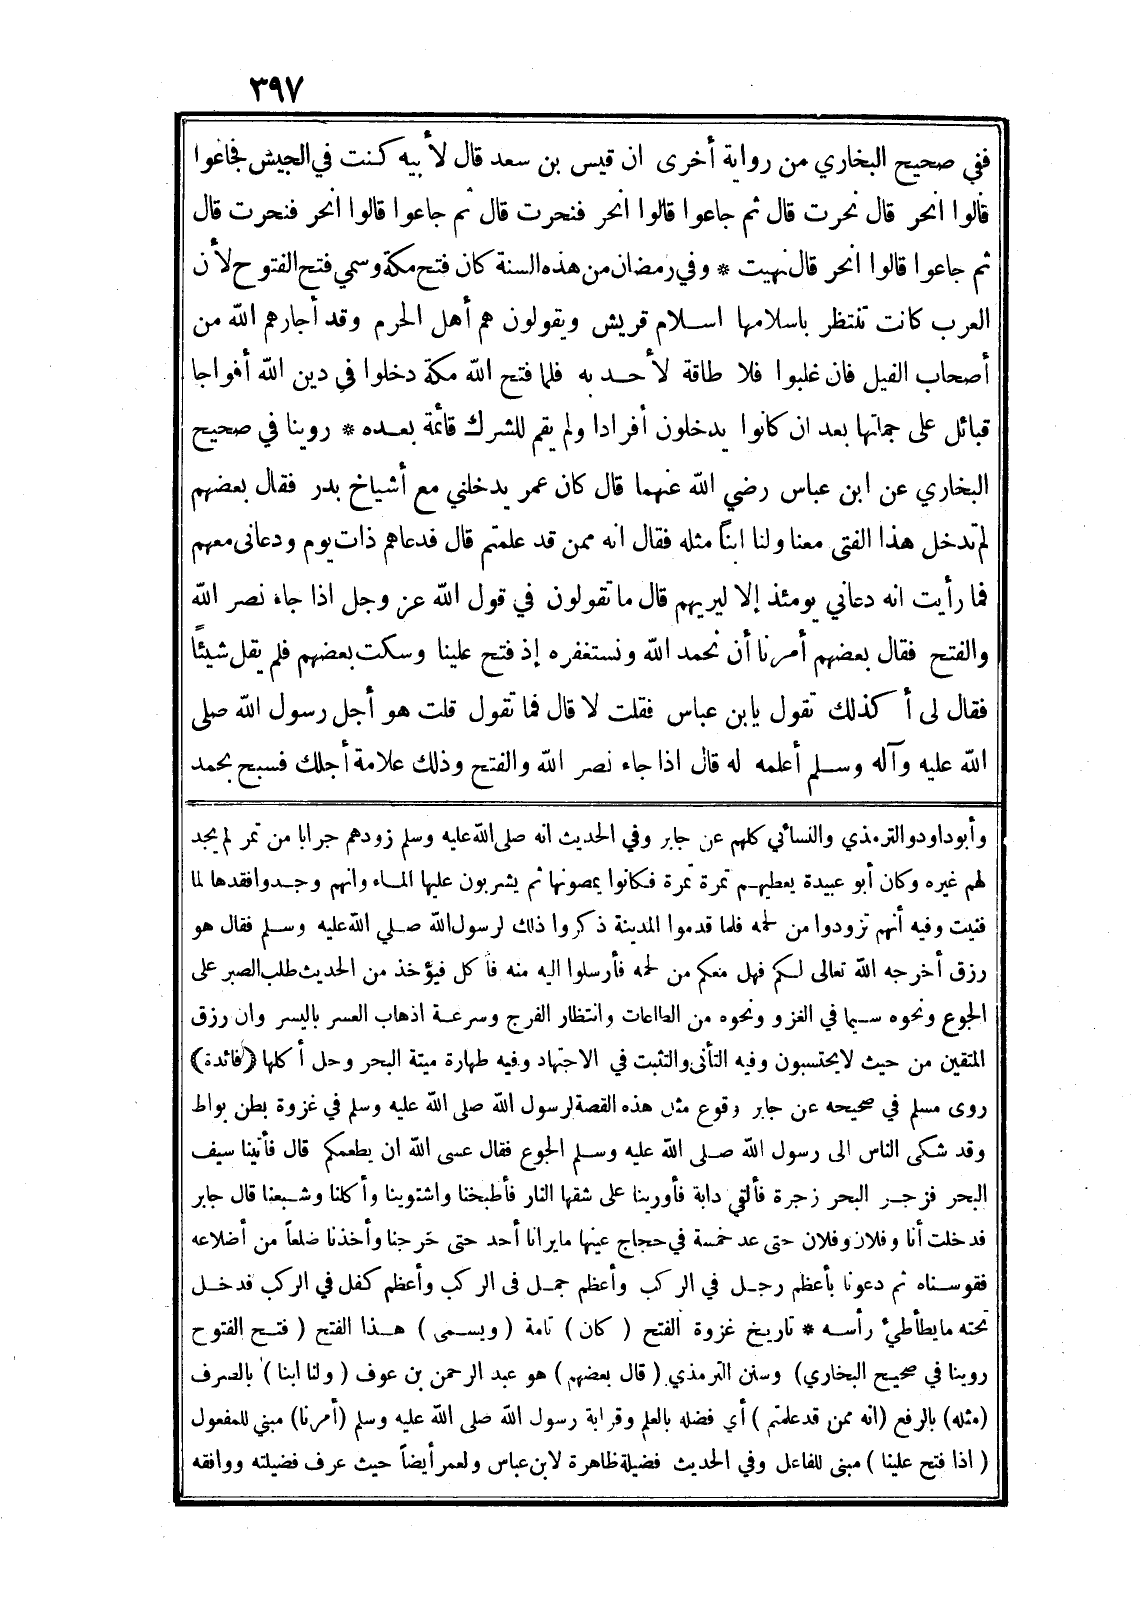 ٣٩٧
ففي صحيح البخاري من رواية أخرى ان قيس بن سعد قال لأبيه كنت في الجيش فجاعوا
قالوا انحر قال نحرت قال ثم جاعوا قالوا انحر فنحرت قال ثم جاعوا قالوا انحر فنحرت قال
ثم جاعوا قالوا انحر قال نهيت * وفي رمضان من هذه السنة كان فتح مكة وسمي فتح الفتوح لأن
العرب كانت تنتظر باسلامها اسلام قريش ويقولون هم أهل الحرم وقد أجارهم الله من
أصحاب الفيل فان غلبوا فلا طاقة لأحد به فلما فتح الله مكة دخلوا في دين الله أفواجا
قبائل على جماتها بعد ان كانوا يدخلون أفرادا ولم يقم للشرك قائمة بعده * روينا في صحيح
البخاري عن ابن عباس رضي الله عنهما قال كان عمر يدخلني مع أشياخ بدر فقال بعضهم
لم تدخل هذا الفتى معنا ولنا ابناً مثله فقال انه ممن قد علمتم قال فدعاهم ذات يوم ودعانى معهم
فما رأيت انه دعاني يومئذ إلا ليريهم قال ما تقولون في قول الله عز وجل اذا جاء نصر الله
والفتح فقال بعضهم أمرنا أن نحمد الله ونستغفره إذ فتح علينا وسكت بعضهم فلم يقل شيئاً
فقال لى أ كذلك تقول يابن عباس فقلت لا قال فما تقول قلت هو أجل رسول الله صلى
الله عليه وآله وسلم أعلمه له قال اذا جاء نصر الله والفتح وذلك علامة أجلك فسبح بحمد
وأبوداود والترمذي والنسائي كلهم عن جابر وفي الحديث انه صلى الله عليه وسلم زودهم جرابا من تمر لم يجد
لهم غيره وكان أبو عبيدة يعطيهم تمرة تمرة فكانوا يمصونها ثم يشربون عليها الماء وانهم وجدوا فقدها لما
فنيت وفيه أنهم تزودوا من لحمه فلما قدموا المدينة ذكروا ذلك لرسول الله صلي الله عليه وسلم فقال هو
رزق أخرجه الله تعالى لكم فهل معكم من لحمه فأرسلوا اليه منه فأكل فيؤخذ من الحديث طلب الصبر على
الجوع ونحوه سيما في الغزو ونحوه من الطاعات وانتظار الفرج وسرعة اذهاب العسر باليسر وان رزق
المتقين من حيث لايحتسبون وفيه التأنى والتثبت في الاجتهاد وفيه طهارة ميتة البحر وحل أكلها (فائدة)
روى مسلم في صحيحه عن جابر وقوع مثل هذه القصة لرسول الله صلى الله عليه وسلم في غزوة بطن بواط
وقد شكى الناس الى رسول الله صلى الله عليه وسلم الجوع فقال عسى الله ان يطعمكم قال فأتينا سيف
البحر فزجر البحر زجرة فألقي دابة فأورينا على شقها النار فأطبخنا واشتوينا وأكلنا وشبعنا قال جابر
فدخلت أنا وفلان وفلان حتى عد خمسة في حجاج عينها مايرانا أحد حتى خرجنا وأخذنا ضلعاً من أضلاعه
فقوسناه ثم دعونا بأعظم رجل في الركب وأعظم جمل فى الركب وأعظم كفل في الركب فدخل
تحته مايطأطيء رأسه * تاريخ غزوة الفتح ( كان ) تامة ( ويسمى ) هذا الفتح ( فتح الفتوح
روينا في صحيح البخاري) وسنن الترمذي ( قال بعضهم ) هو عبد الرحمن بن عوف ( ولنا ابنا ) بالصرف
(مثله) بالرفع (انه ممن قد علمتم ) أي فضله بالعلم وقرابة رسول الله صلى الله عليه وسلم (أمرنا) مبني للمفعول
( اذا فتح علينا ) مبنى للفاعل وفي الحديث فضيلة ظاهرة لابن عباس ولعمر أيضاً حيث عرف فضيلته ووافقه